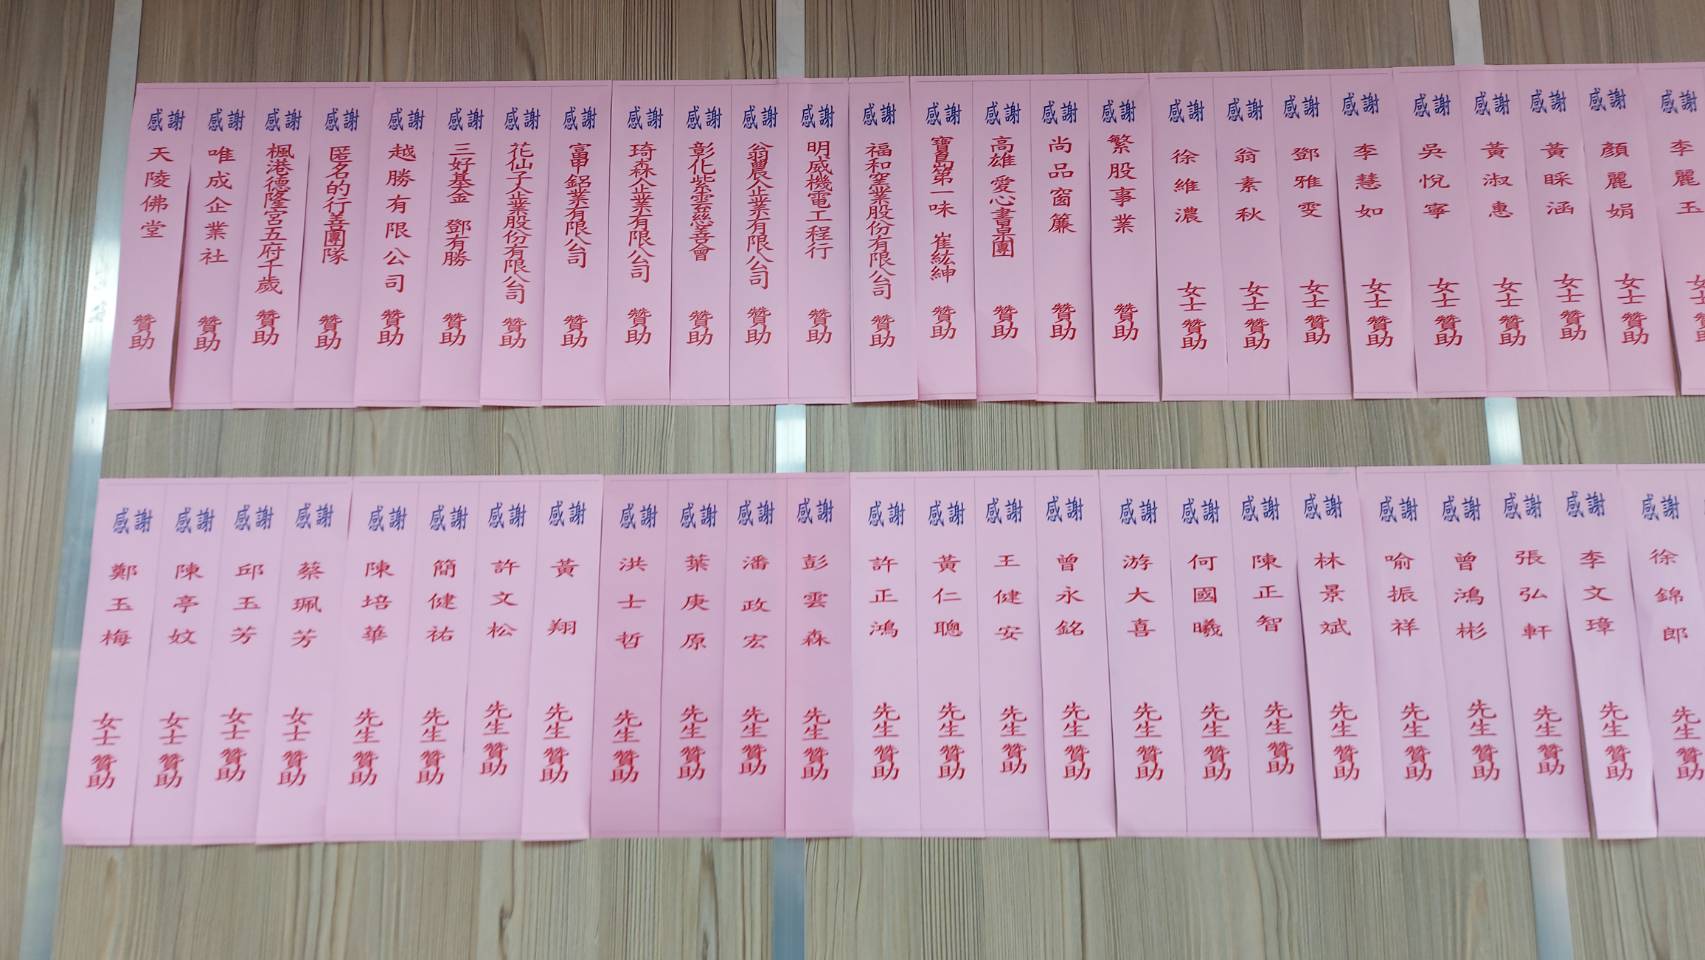 感謝 天陵佛堂 贊助
感謝 唯成企業社 贊助
感謝 楓港德隆宮五府千歲 贊助
感謝 匿名的行善團隊 贊助
感謝 越勝有限公司 贊助
感謝 三好基金 鄧有勝 贊助
感謝 花仙子企業股份有限公司 贊助
感謝 富甲鋁業有限公司 贊助
感謝 琦森企業有限公司 贊助
感謝 彰化紫雲慈善會 贊助
感謝 翁農企業有限公司 贊助
感謝 明威機電工程行 贊助
感謝 福和窯業股份有限公司 贊助
感謝 寶島第一味 崔紘紳 贊助
感謝 高雄愛心書畫團 贊助
感謝 尚品窗簾 贊助
感謝 繁股事業 贊助
感謝 徐維濃 女士 贊助
感謝 翁素秋 女士 贊助
感謝 鄧雅雯 女士 贊助
感謝 李慧如 女士 贊助
感謝 吳悅寧 女士 贊助
感謝 黃淑惠 女士 贊助
感謝 黃睬涵 女士 贊助
感謝 顏麗娟 女士 贊助
感謝 李麗玉 女士 贊助
感謝 鄭玉梅 女士 贊助
感謝 陳亭妏 女士 贊助
感謝 邱玉芳 女士 贊助
感謝 蔡珮芳 女士 贊助
感謝 陳培華 先生 贊助
感謝 簡健祐 先生 贊助
感謝 許文松 先生 贊助
感謝 黃翔 先生 贊助
感謝 洪士哲 先生 贊助
感謝 葉庚原 先生 贊助
感謝 潘政宏 先生 贊助
感謝 彭雲森 先生 贊助
感謝 許正鴻 先生 贊助
感謝 黃仁聰 先生 贊助
感謝 王健安 先生 贊助
感謝 曾永銘 先生 贊助
感謝 游大喜 先生 贊助
感謝 何國曦 先生 贊助
感謝 陳正智 先生 贊助
感謝 林景斌 先生 贊助
感謝 喻振祥 先生 贊助
感謝 曾鴻彬 先生 贊助
感謝 張弘軒 先生 贊助
感謝 李文璋 先生 贊助
感謝 徐錦郎 先生 贊助